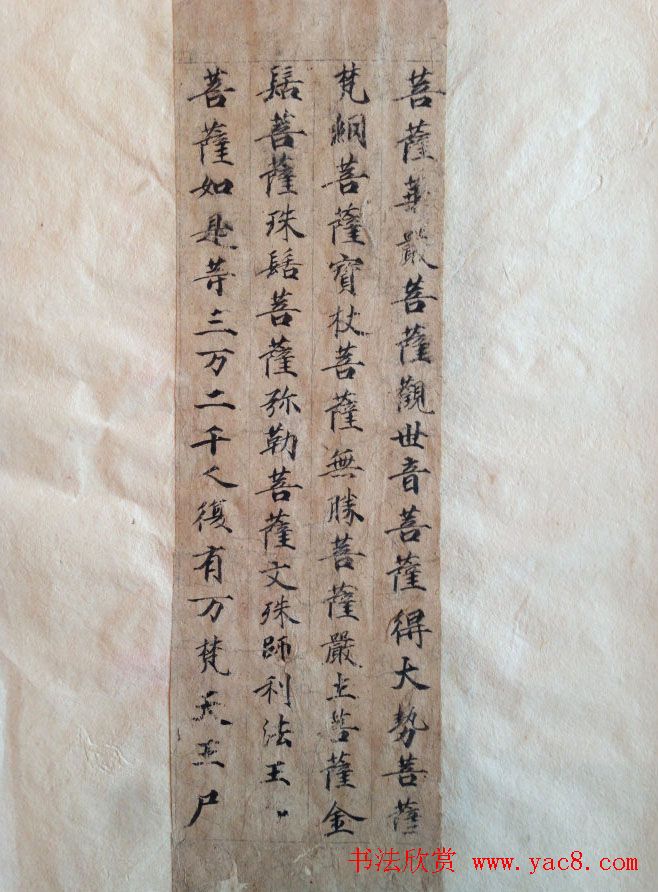 菩薩華嚴菩薩觀世音菩薩得大勢菩薩
梵網菩薩寶杖菩薩無勝菩薩嚴土菩薩金
髻菩薩珠髻菩薩弥勒菩薩文殊師利法王
菩薩如是等三万二千人復有万梵天王尸
书法欣赏 www.yac8.com